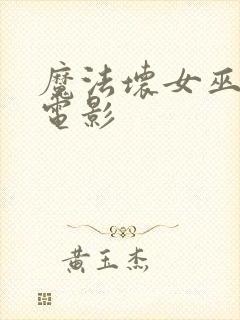 魔法壞女巫
電影
黄玉杰